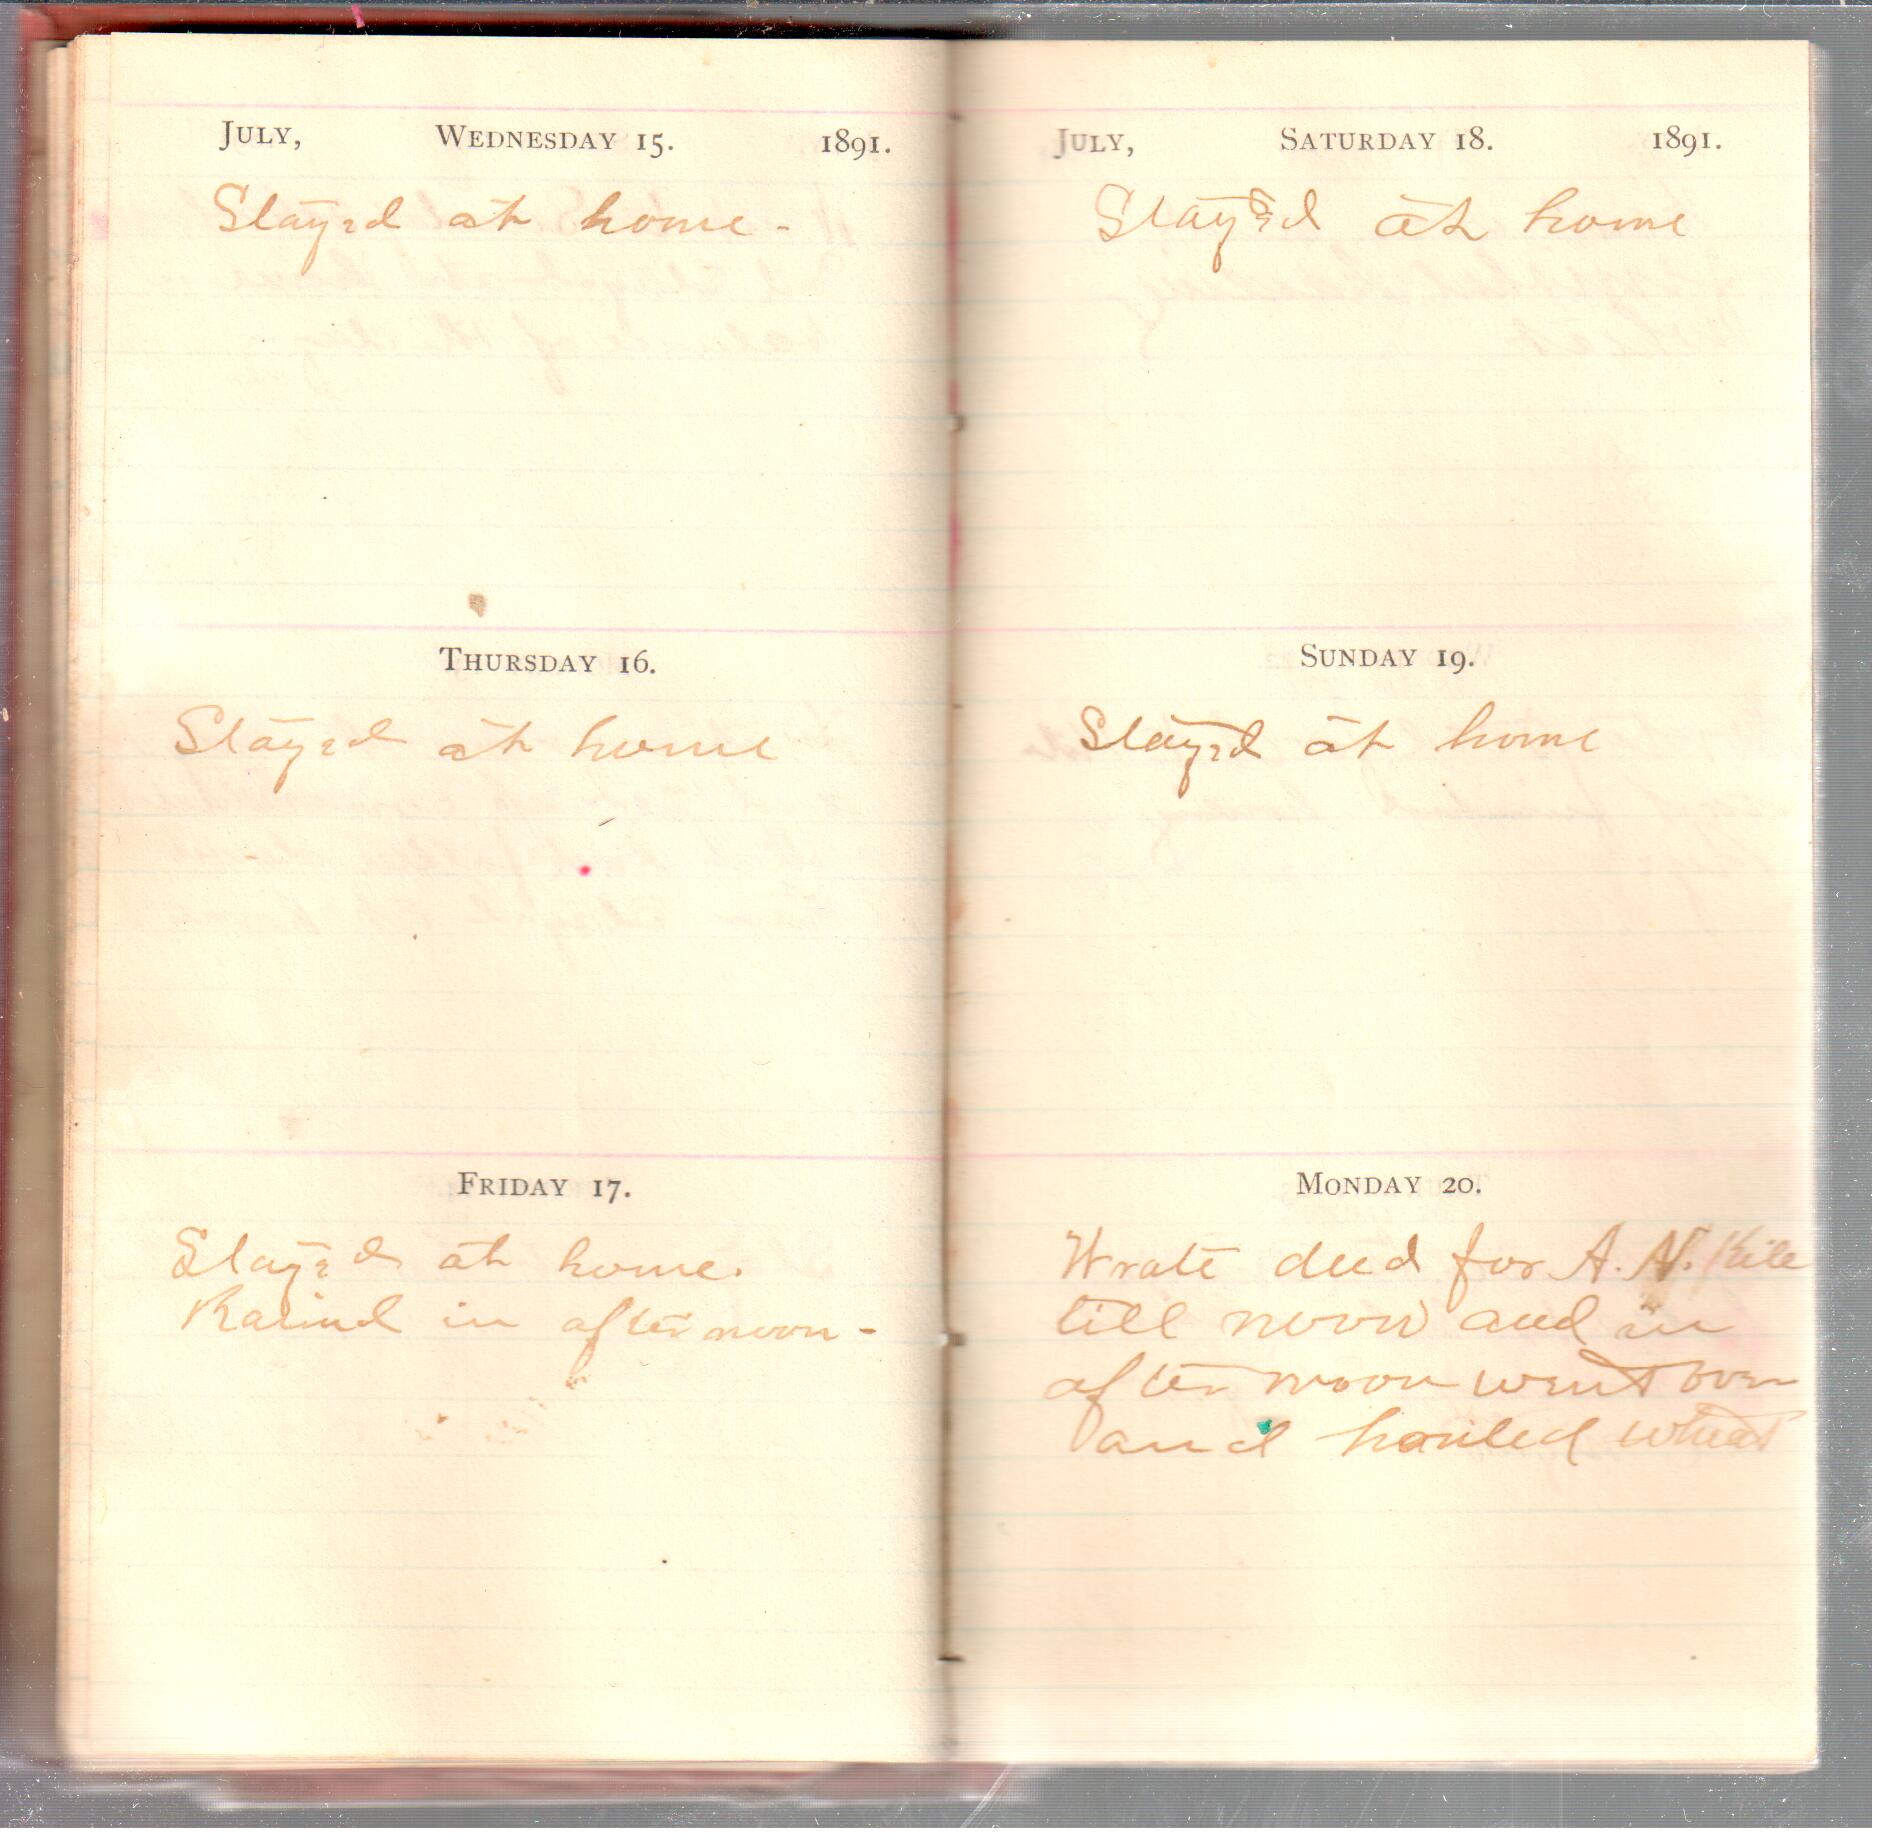 JULY, WEDNESDAY 15. 1891.
Stayed at home -
THURSDAY 16.
Stayed at home
FRIDAY 17.
Stayed at home.
Rained in afternoon -
JULY, SATURDAY 18. 1891.
Stayed at home
SUNDAY 19.
Stayed at home
MONDAY 20.
Wrote deed for A. N. Kile
till noon and in
afternoon went over
and hauled wheat